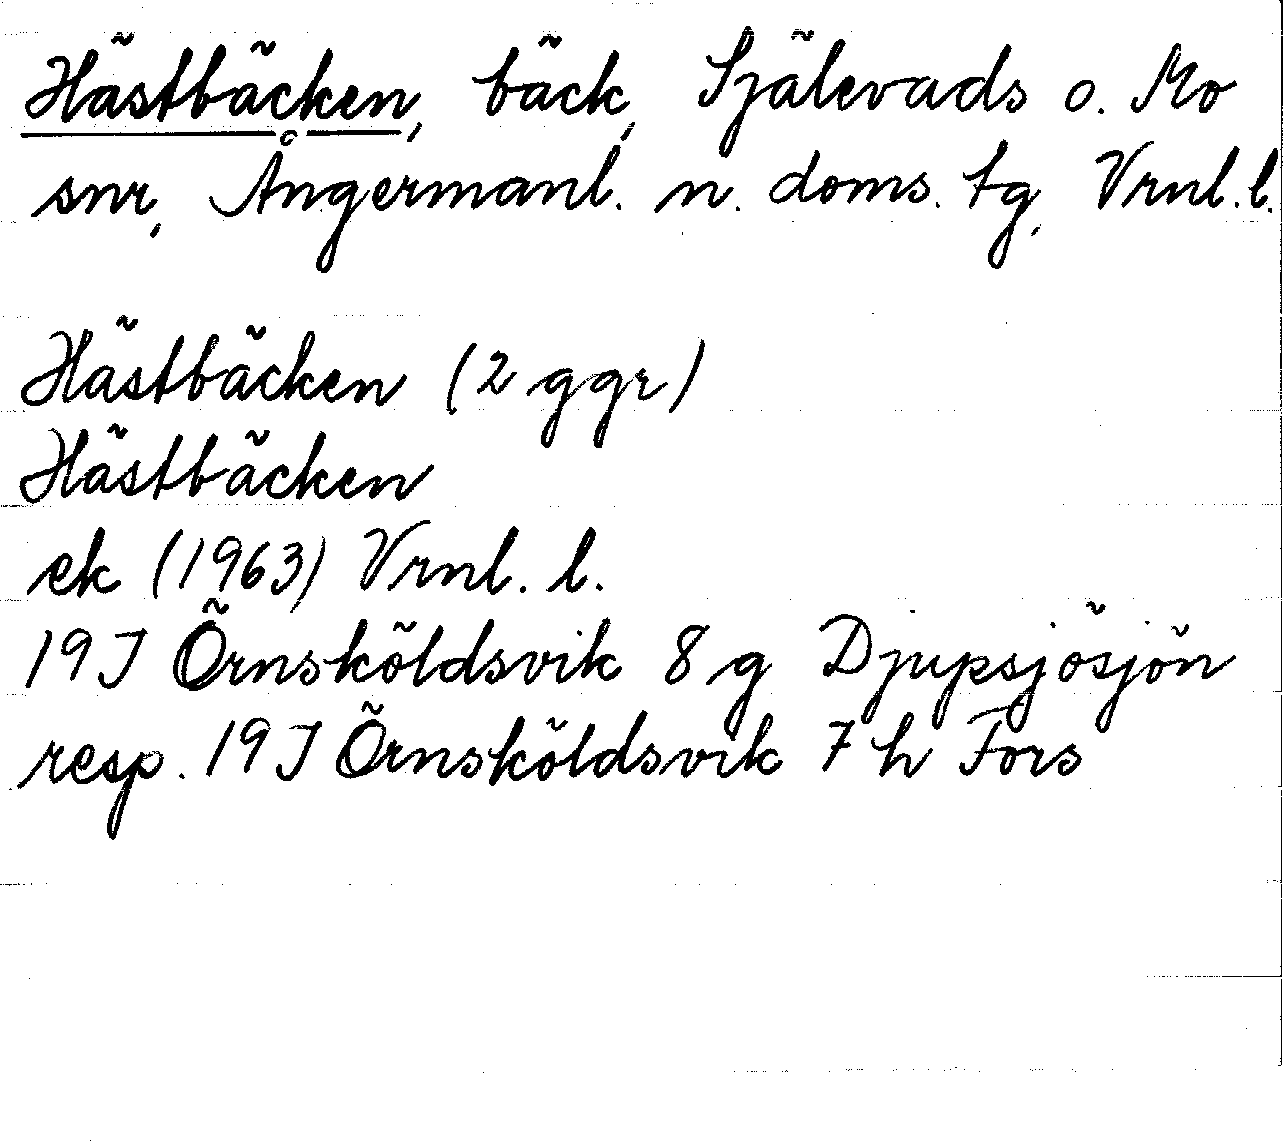 Hästbäcken, bäck, Själevads o. Mo
snr, Ångermanl. n. doms. tg, Vrnl. l.
Hästbäcken (2 ggr)
Hästbäcken
ek (1963) Vrnl. l.
19J Örnsköldsvik 8 g Djupsjösjön
resp. 19J Örnsköldsvik 7 h Fors